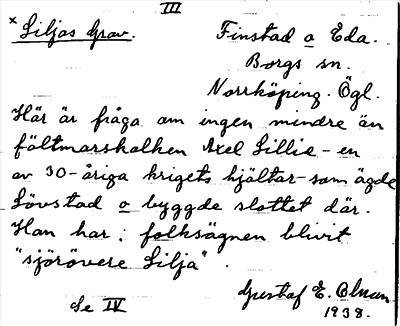 III
× Liljas Grav. Finstad o Eda.
Borgs sn.
Norrköping. Ögl.
Här är fråga om ingen mindre än
fältmarskalken Axel Lillie - en
av 30-åriga krigets hjältar - som ägde
Lövstad o byggde slottet där.
Han har i folksägnen blivit
"sjörövere Lilja".
Se IV Gustaf E. Olman
1938.